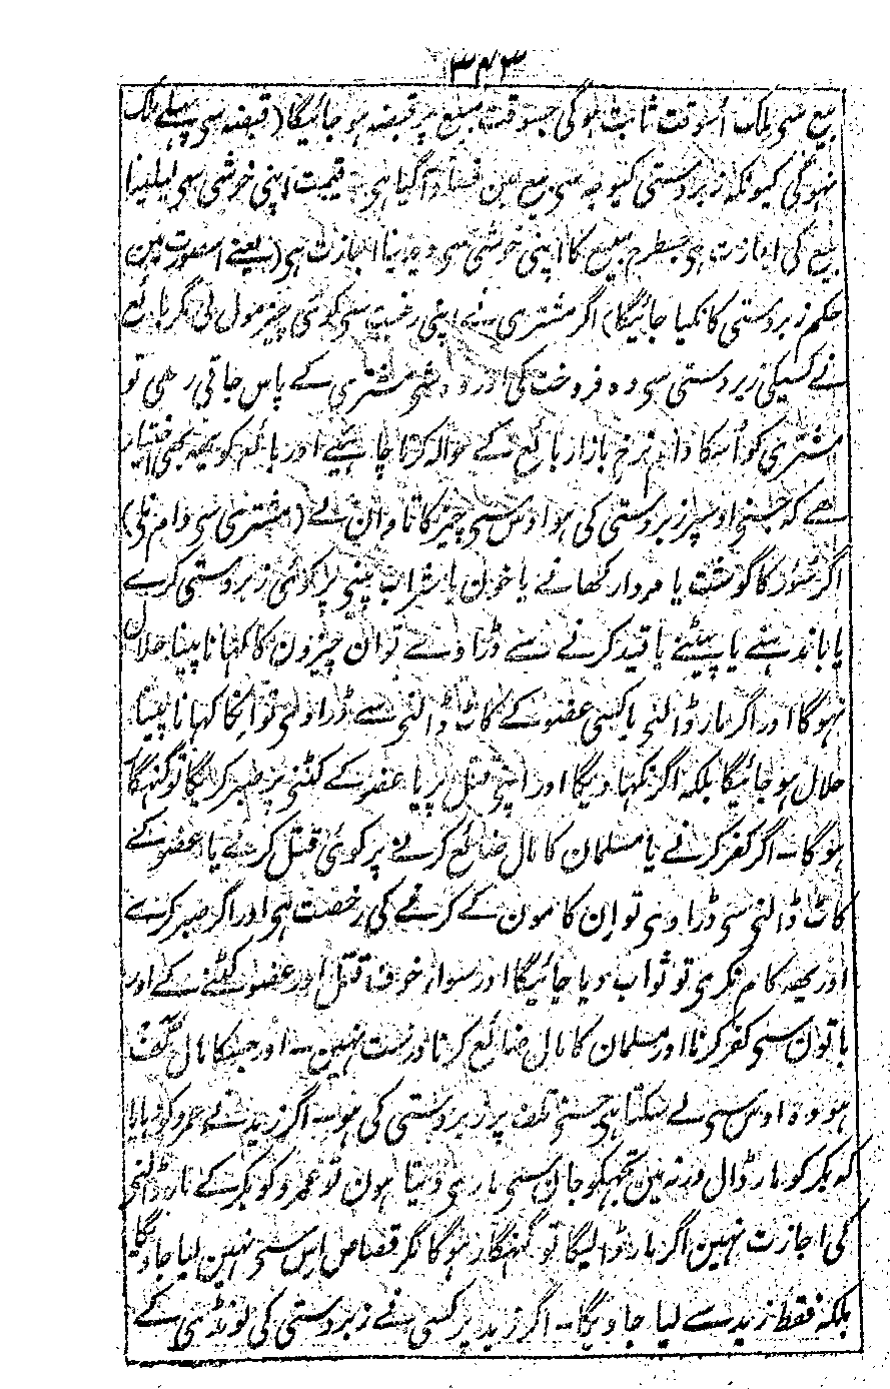 ۳۷۳
بیع سی ملک اُسوقت ثابت ہوگی جسوقت مبیع پر قبضہ ہو جائیگا (قبضہ سی پہلے ملک
نہوگی کیونکہ زبردستی کیوجہ سی بیع مین فساد آگیا ہی۔ قیمت اپنی خوشی سی لیلینا
بیع کی اجازت ہی جسطرح مبیع کا اپنی خوشی سی دیدینا اجازت ہی (یعنے اسصورت مین
حکم زبردستی کا نکیا جائیگا) اگر مشتری نے اپنی رغبت سی کوئی چیز مول لی مگر بائع
نے کسیکی زبردستی سی وہ فروخت کی اور وہ شی مشتری کے پاس جاتی رھی تو
مشتری کو اُسکا دام نرخ بازار بائع کے حوالہ کرنا چاہیئے اور بائع کو یہہ بھی اختیار
ھے کہ جسنے اوسپر زبردستی کی ہو اوس سی چیز کا تاوان لے (مشتری سی دام نلی)
اگر سُور کا گوشت یا مردار کھانے یا خون یا شراب پینی پر کوئی زبردستی کرے
یا باندہنے یا پیٹنے یا قید کرنے سے ڈراوے تو ان چیزون کا کہانا پینا حلال
نہوگا اور اگر مار ڈالنی یا کسی عضو کے کاٹ ڈالنی سے ڈراوی تو انکا کہانا پینا
حلال ہو جائیگا بلکہ اگر نکہاویگا اور اپنی قتل پر یا عضو کے کٹنی پر صبر کریگا تو گنہگار
ہوگا۔ اگر کفر کرنے یا مسلمان کا مال ضائع کرنے پر کوئی قتل کرنے یا عضو کے
کاٹ ڈالنی سی ڈراوی تو اِن کامون کے کرنے کی رخصت ہی اور اگر صبر کرے
اور یھہ کام نکری تو ثواب دیا جائیگا اور سوار خوف قتل اور عضو کٹنے کے اور
باتون سی کفر کرنا اور مسلمان کا مال ضائع کرنا درست نہین۔ اور جسکا مال تلف
ہو وہ اوس سی لے سکتا ہی جسنے تلف پر زبردستی کی ہو۔ اگر زید نے عمرو کو دبایا
کہ بکر کو مار ڈال ورنہ مین تجہکو جان سی ماری دیتا ہون تو عمرو کو بکر کے مار ڈالنی
کی اجازت نہین اگر مار ڈالیگا تو گنہگار ہوگا مگر قصاص اِس سی نہین لیا جاویگا
بلکہ فقط زید سے لیا جاویگا۔ اگر زید پر کسی نے زبردستی کی لونڈی کے